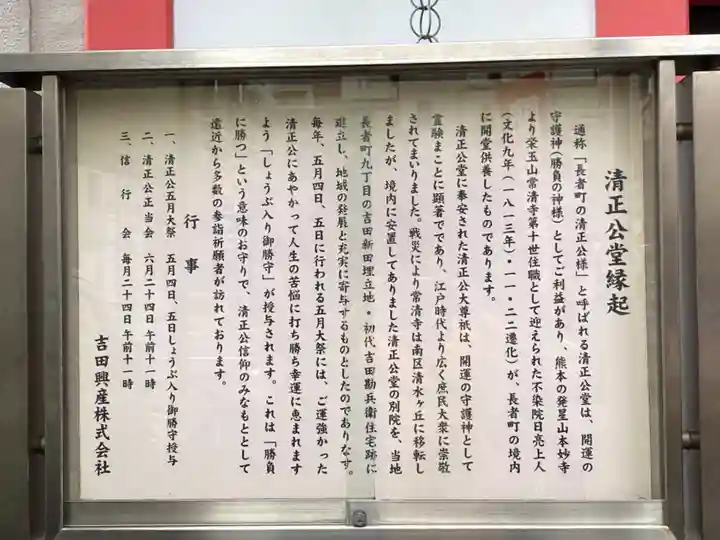 清正公堂縁起
通称「長者町の清正公様」と呼ばれる清正公堂は、開運の
守護神(勝負の神様)としてご利益があり、熊本の発星山本妙寺
より栄玉山常清寺第十世住職として迎えられた不染院日亮上人
(文化九年(一八一三年)・一一・二二遷化)が、長者町の境内
に開堂供養したものであります。
清正公堂に奉安された清正公大尊祇は、開運の守護神として
霊験まことに顕著でであり、江戸時代より広く庶民大衆に崇敬
されてまいりました。戦災により常清寺は南区清水ヶ丘に移転し
ましたが、境内に安置してありました清正公堂の別院を、当地
長者町九丁目の吉田新田埋立地・初代吉田勘兵衛住宅跡に
建立し、地域の発展と充実に寄与するものとしたのでありなす。
毎年、五月四日、五日に行われる五月大祭には、ご運強かった
清正公にあやかって人生の苦悩に打ち勝ち幸運に恵まれます
よう「しょうぶ入り御勝守」が授与されます。これは「勝負
に勝つ」という意味のお守りで、清正公信仰のみなもととして
遠近から多数の参詣祈願者が訪れております。
行事
一、清正公五月大祭 五月四日、五日しょうぶ入り御勝守授与
二、清正公正当会 六月二十四日午前十一時
三、信行会 毎月二十四日午前十一時
吉田興産株式会社